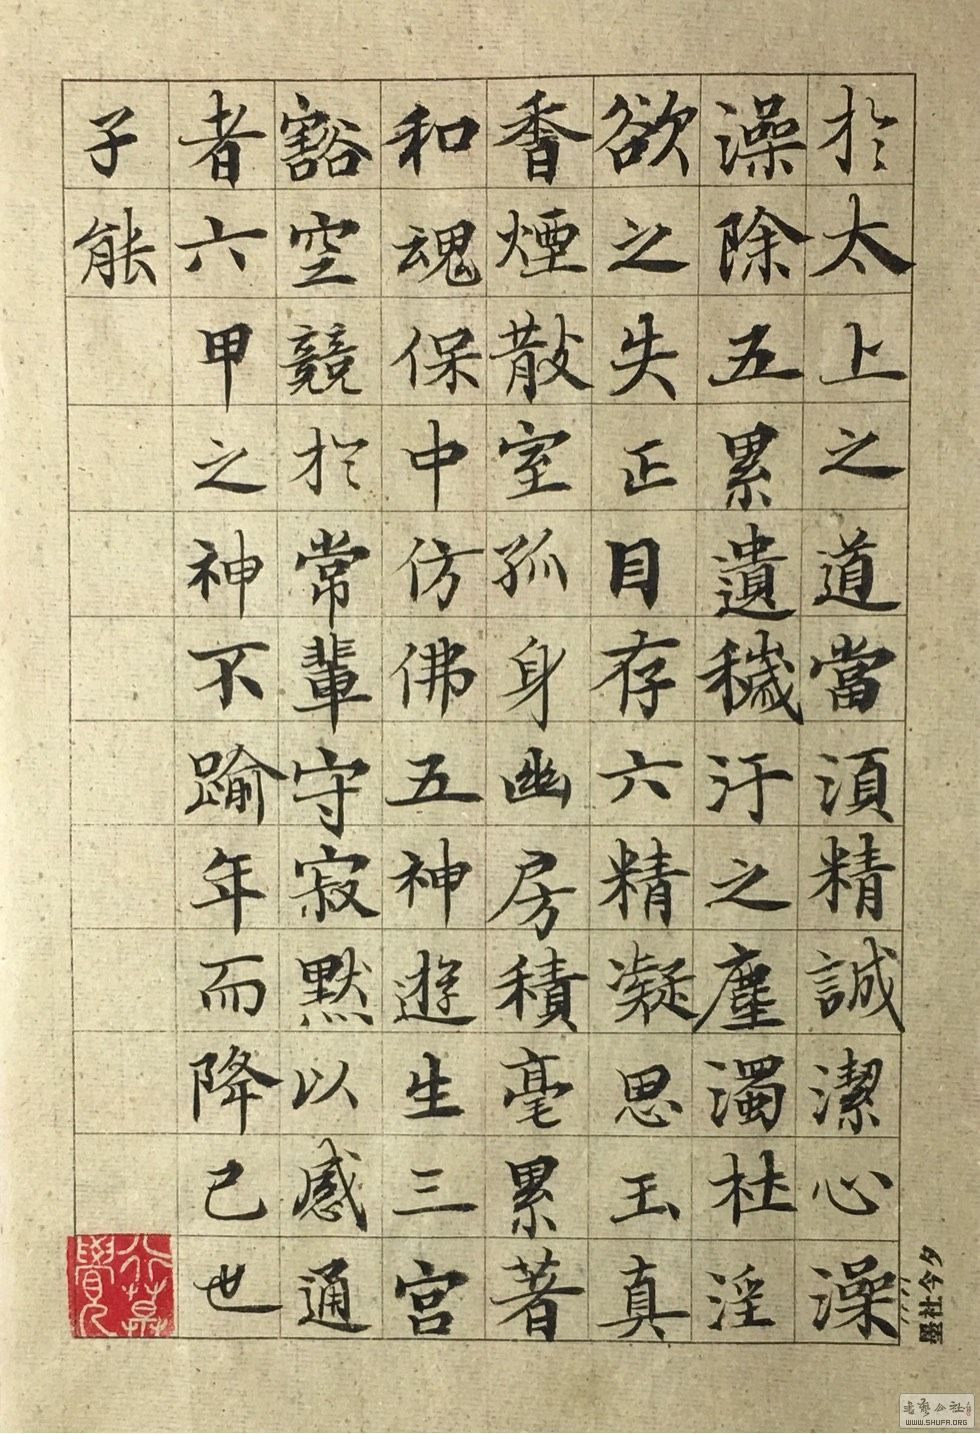 於太上之道當須精誠潔心澡
澡除五累遺穢汙之塵濁杜淫
欲之失正目存六精凝思玉真
香煙散室孤身幽房積毫累著
和魂保中仿佛五神遊生三宮
豁空競於常輩守寂默以感通
者六甲之神不踰年而降己也
子能
墨社今夕
书艺公社
WWW.SHUFA.ORG